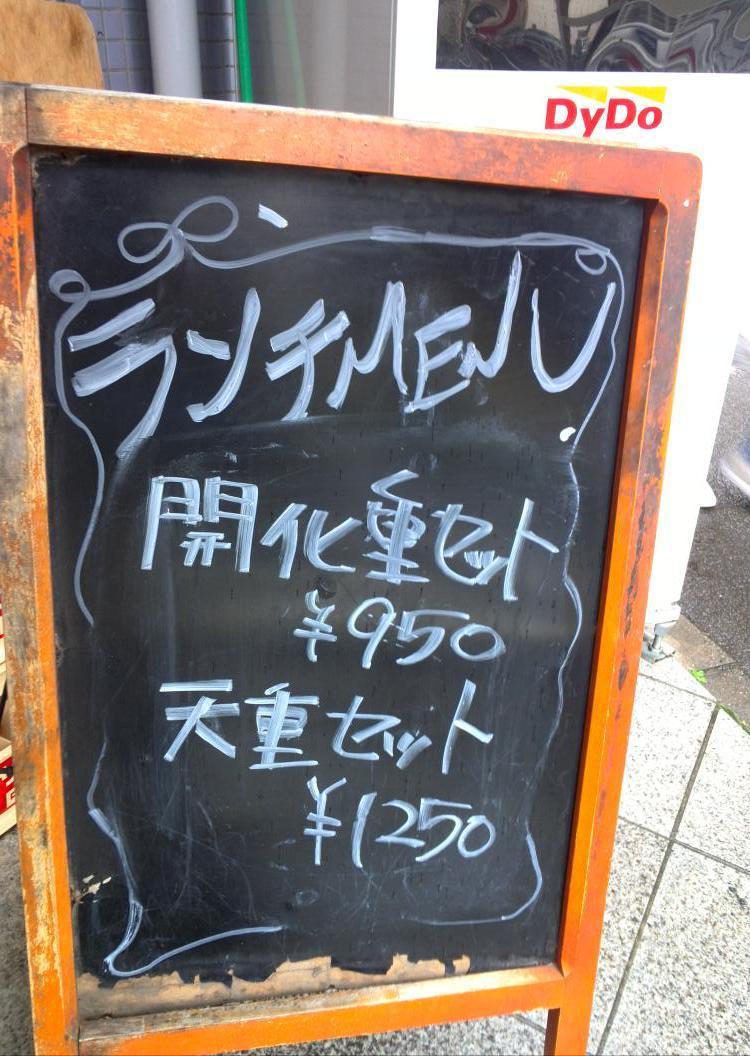 DyDo
ランチMENU
開化重セット
¥950
天重セット
¥1250